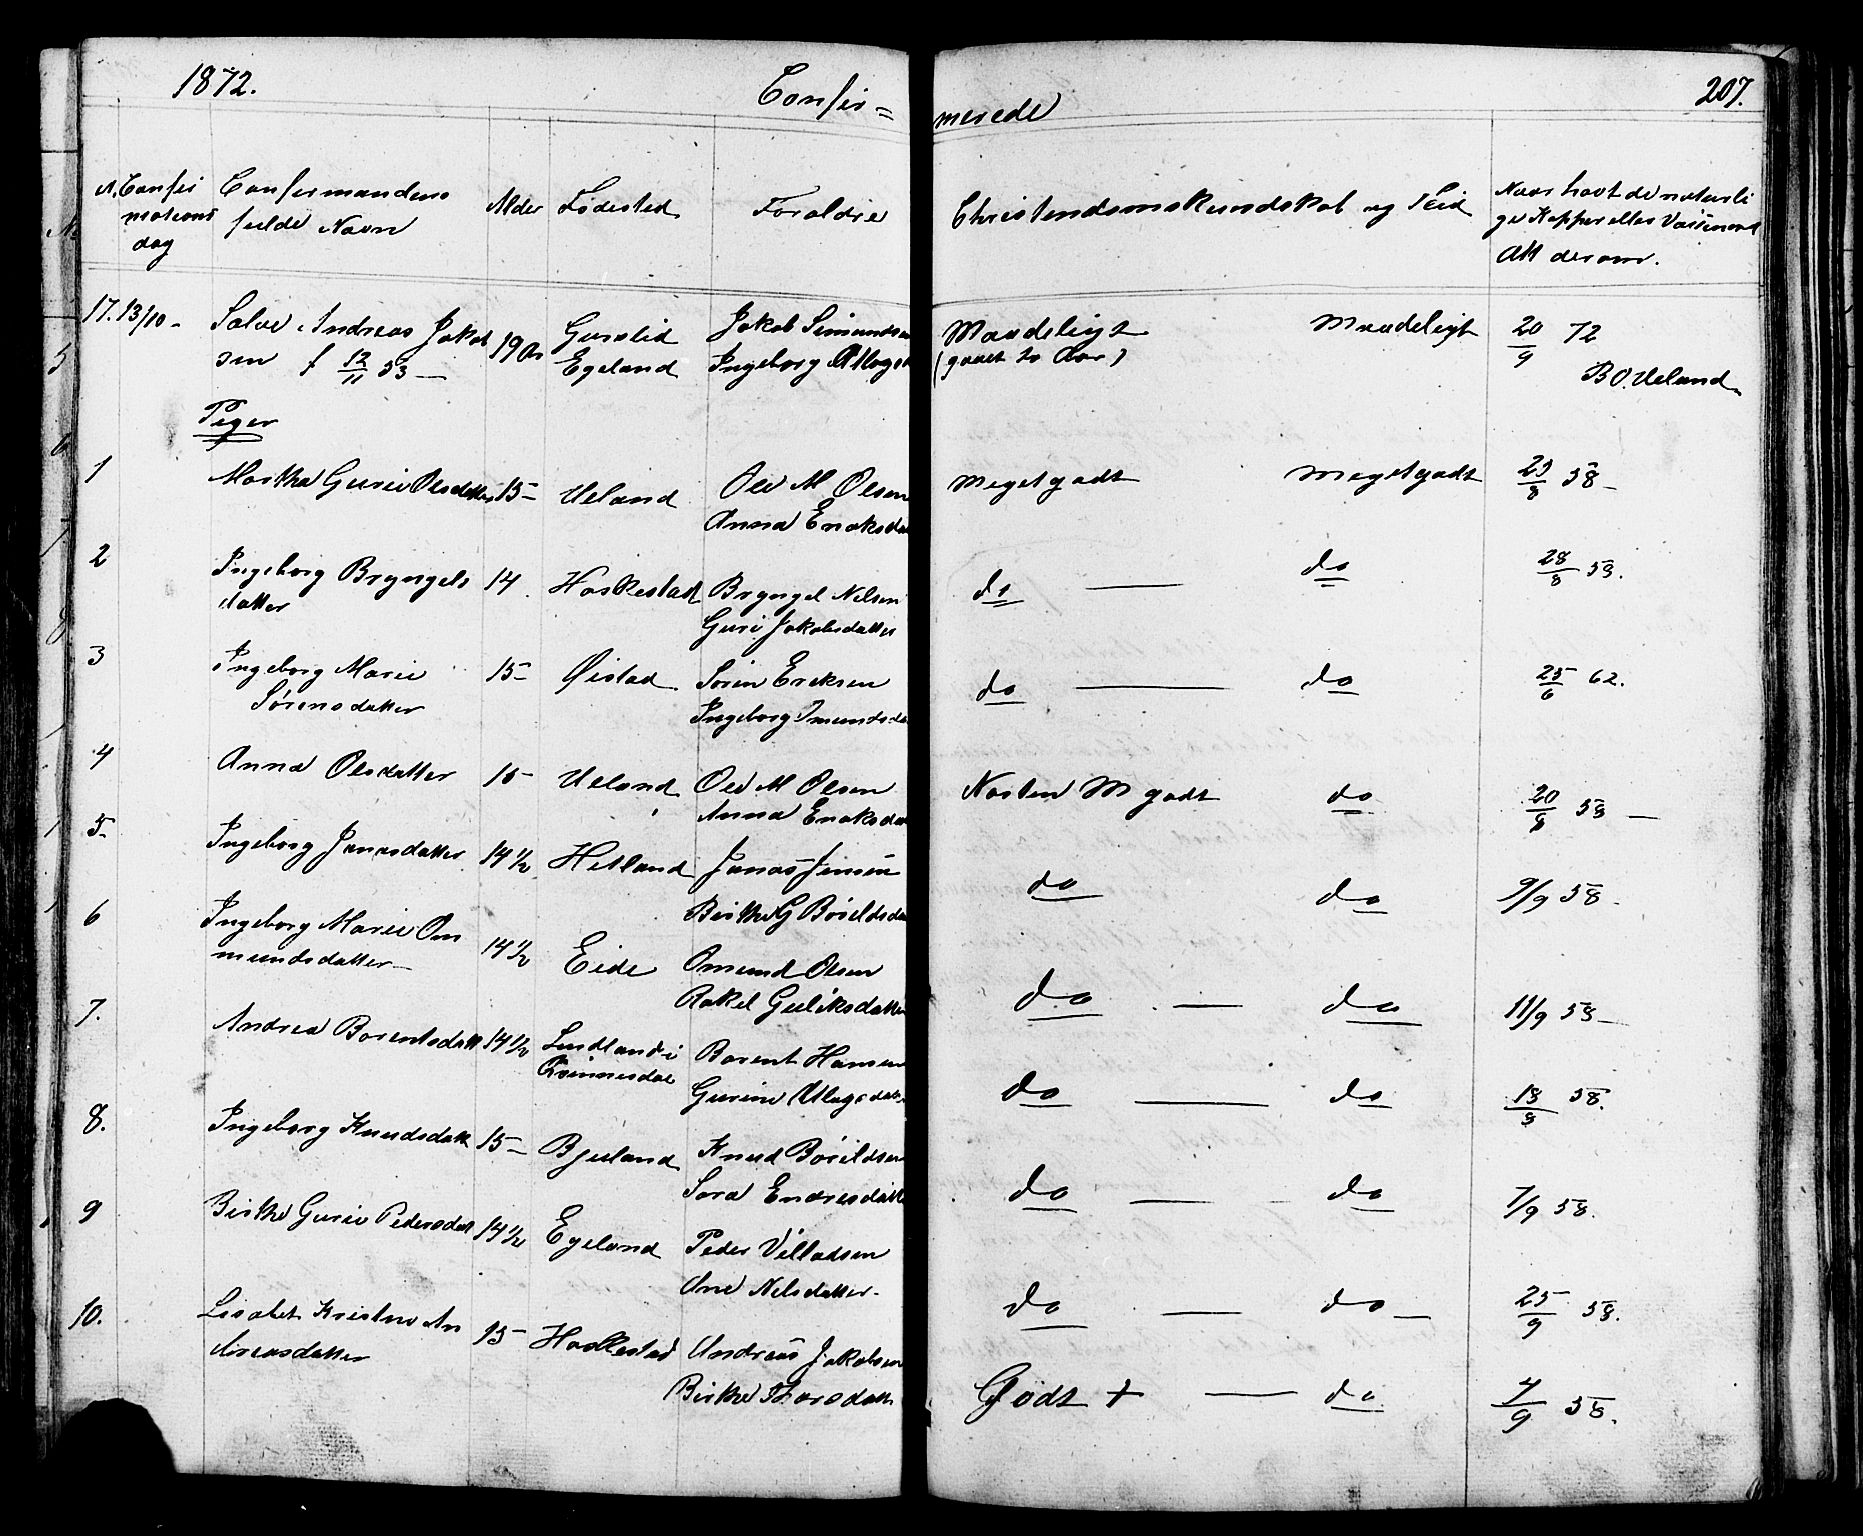 1872.
Confir=
merede
207.
N. Confir
mations
dag
Confirmandens
fulde Navn
Alder
Fødested
Forældre
Christendomskundskab og Flid
Naar havt de naturli
ge Kopper eller Vaccineret
Att derom.
17. 13/10 -
Salve Andreas Jakob
sen f 12/11 53 -
19 Ar
Gurslid
Egeland
Jakob Simundsen
Ingeborg Atlagsd
Maadeligt
(gaaet to Aar)
Maadeligt
20/9 72
B O. Ueland
Piger
1
Martha Gurie Olsdatter
15 -
Ueland
Ole M Olsen
Anna Enoksdat
Meget godt
Meget godt
23/8 58 -
2
Ingeborg Bryngels
datter
14
Haskestad
Bryngel Nilsen
Guri Jakobsdatter
do —
do
28/8 58.
3
Ingeborg Marie
Sørensdatter
15 -
Øistad
Sørin Eriksen
Ingeborg Omundsda
do —
do
25/6 62.
4
Anna Olsdatter
15 -
Ueland
Ole M Olsen
Anna Enoksdat
Næsten M godt
do
20/8 58 —
5
Ingeborg Jonasdatter
14 1/2
Hetland
Jonas Jensen
Birthe G Børildsda
do
do
9/9 58 -
6
Ingeborg Marie Om
mundsdatter -
14 1/2
Eide
Omund Olsen
Rakel Guliksdatter
do —
do
11/9 58 -
7.
Andrea Barentsdatt
14 1/2
Lindland i
Qvinnesdal
Barent Hansen
Gurine Atlagsdat.
do —
do
18/8 58.
8.
Ingeborg Knudsdatt
15 -
Bjuland
Knud Børildsen
Sara Endresdatt
do —
do
7/9 58.
9
Birthe Gurie Pedersdat
14 1/2
Egeland
Peder Villadsen
Ane Nilsdatter -
do —
do —
25/9 58.
10.
Lisabet Kristine An
dreasdatter
15 -
Haskestad
Andreas Jakobsen
Birthe Tharsdatt
Godt + —
do
4/9 58.